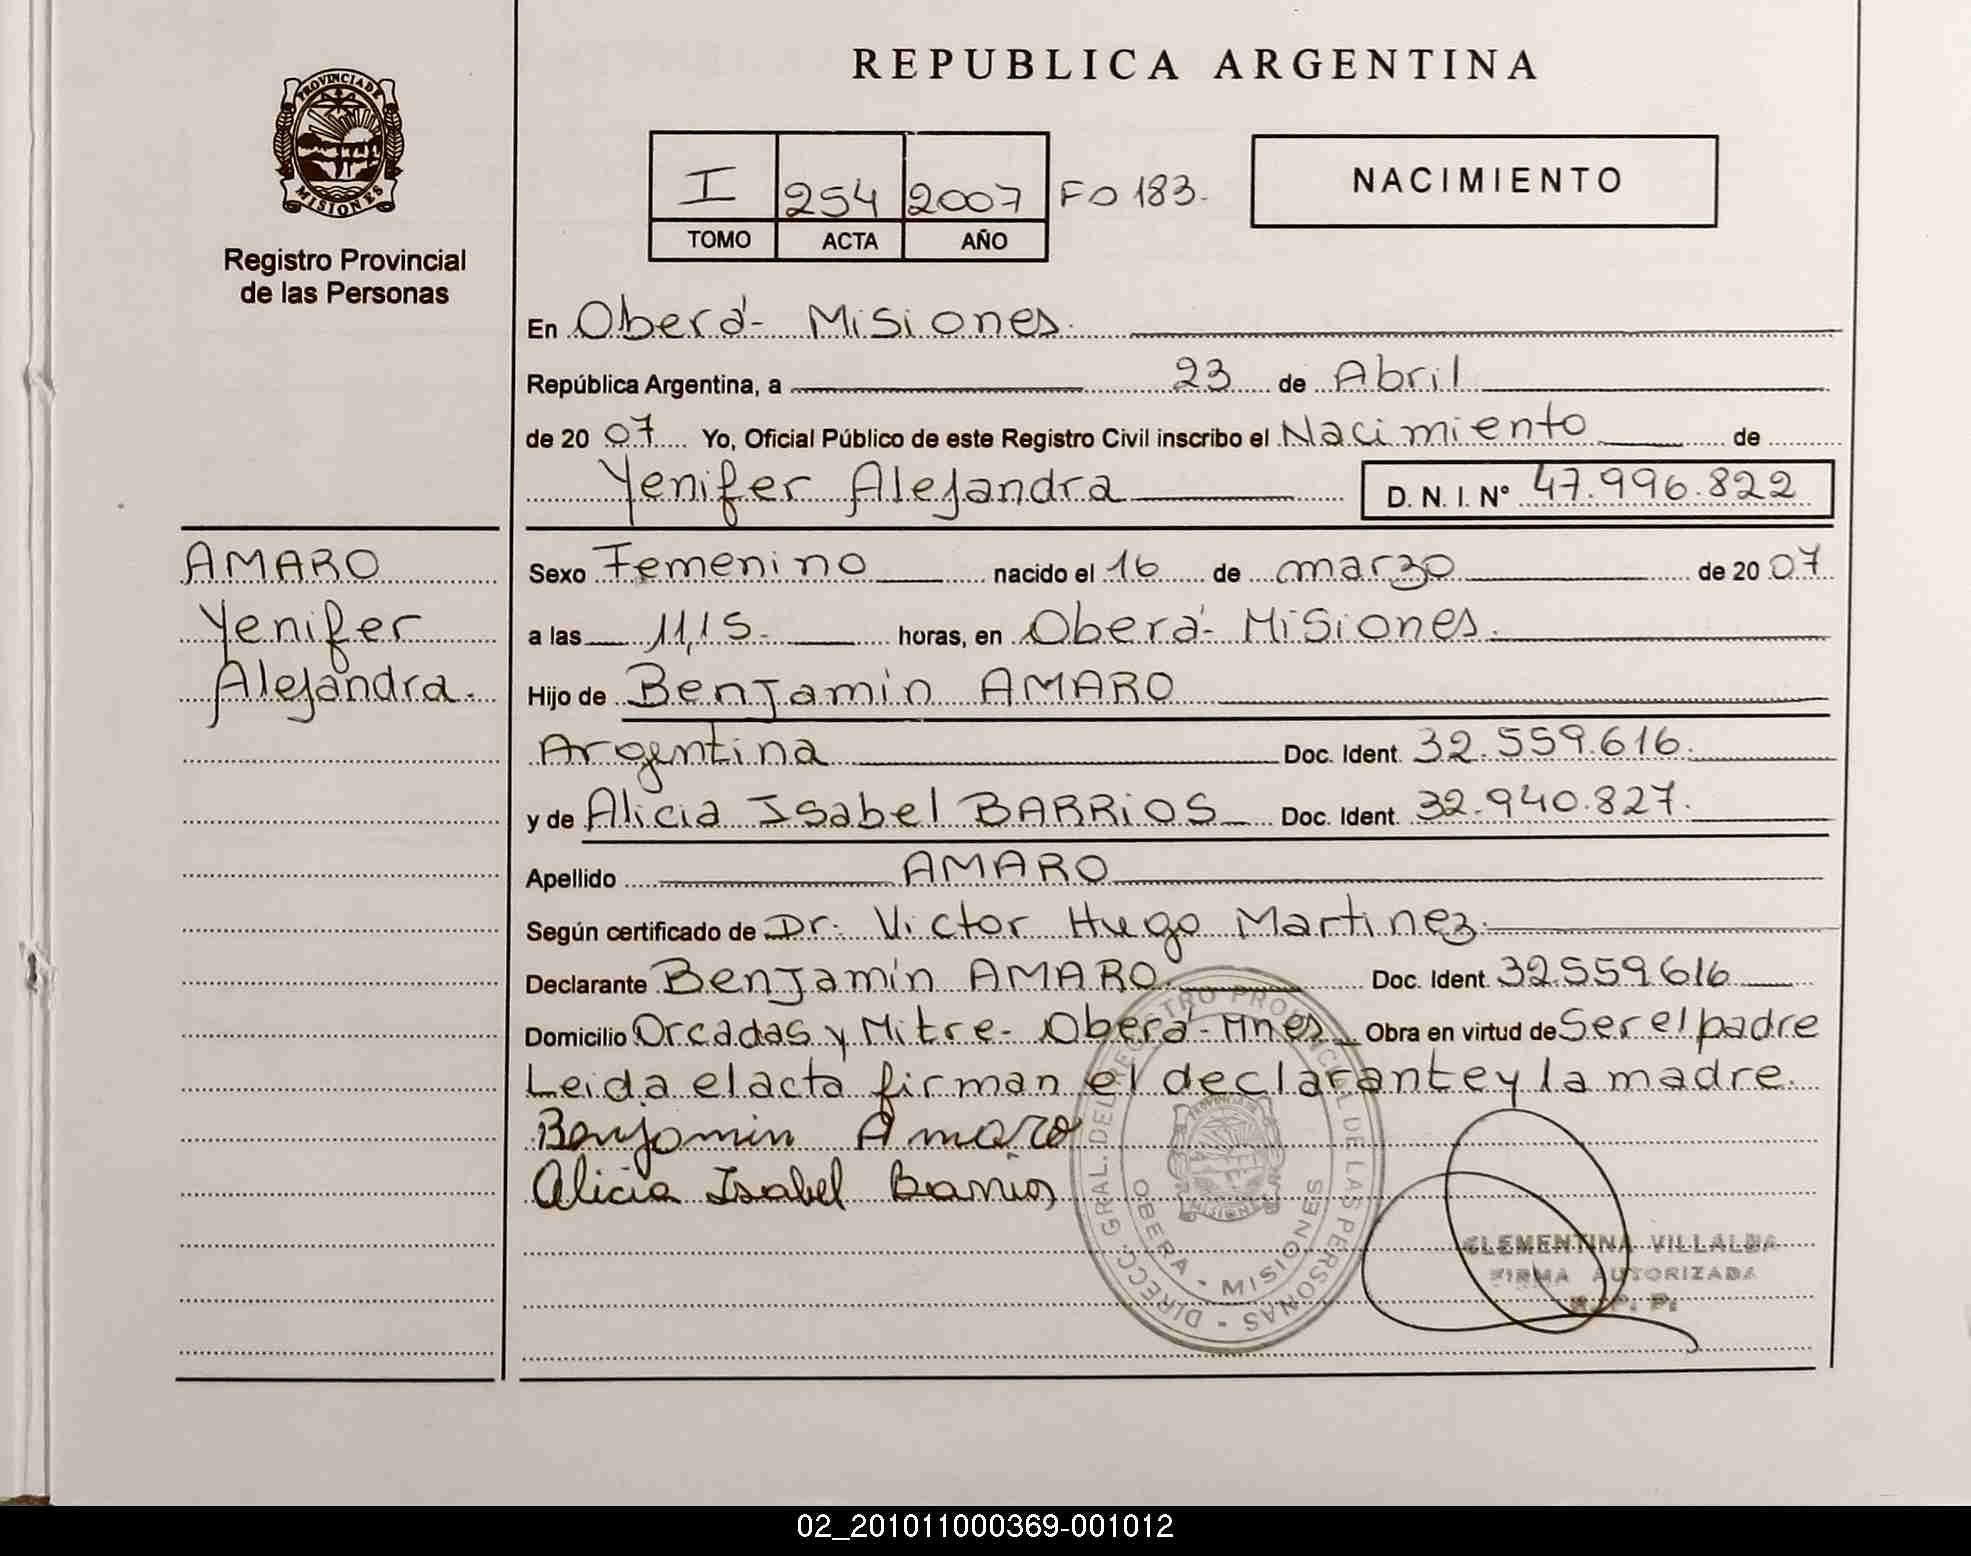 REPUBLICA ARGENTINA
PROVINCIA DE
MISIONES
Registro Provincial
de las Personas
I 254 2007 Fo 183.
TOMO ACTA AÑO
NACIMIENTO
En Oberá- Misiones.
República Argentina, a 23 de Abril
de 20 07 Yo, Oficial Público de este Registro Civil inscribo el Nacimiento de
Yenifer Alejandra D. N. I. Nº 47.996.822
AMARO
Yenifer
Alejandra.
Sexo Femenino nacido el 16 de marzo de 20 07
a las 11,15. horas, en Oberá- Misiones.
Hijo de Benjamín AMARO
Argentina Doc. Ident. 32.559.616.
y de Alicia Isabel BARRiOS Doc. Ident. 32.940.827.
Apellido AMARO
Según certificado de Dr. Victor Hugo Martinez.
Declarante Benjamín AMARO. Doc. Ident. 32.559.616
Domicilio Orcadas y Mitre- Oberá- Mnes Obra en virtud de Ser el padre
Leida el acta firman el declarante y la madre.
Benjamin Amaro
Alicia Isabel Barrios
DIRECC. GRAL. DEL REGISTRO PROVINCIAL DE LAS PERSONAS
OBERA - MISIONES
CLEMENTINA VILLALBA
FIRMA AUTORIZADA
R. P. P.
02_201011000369-001012